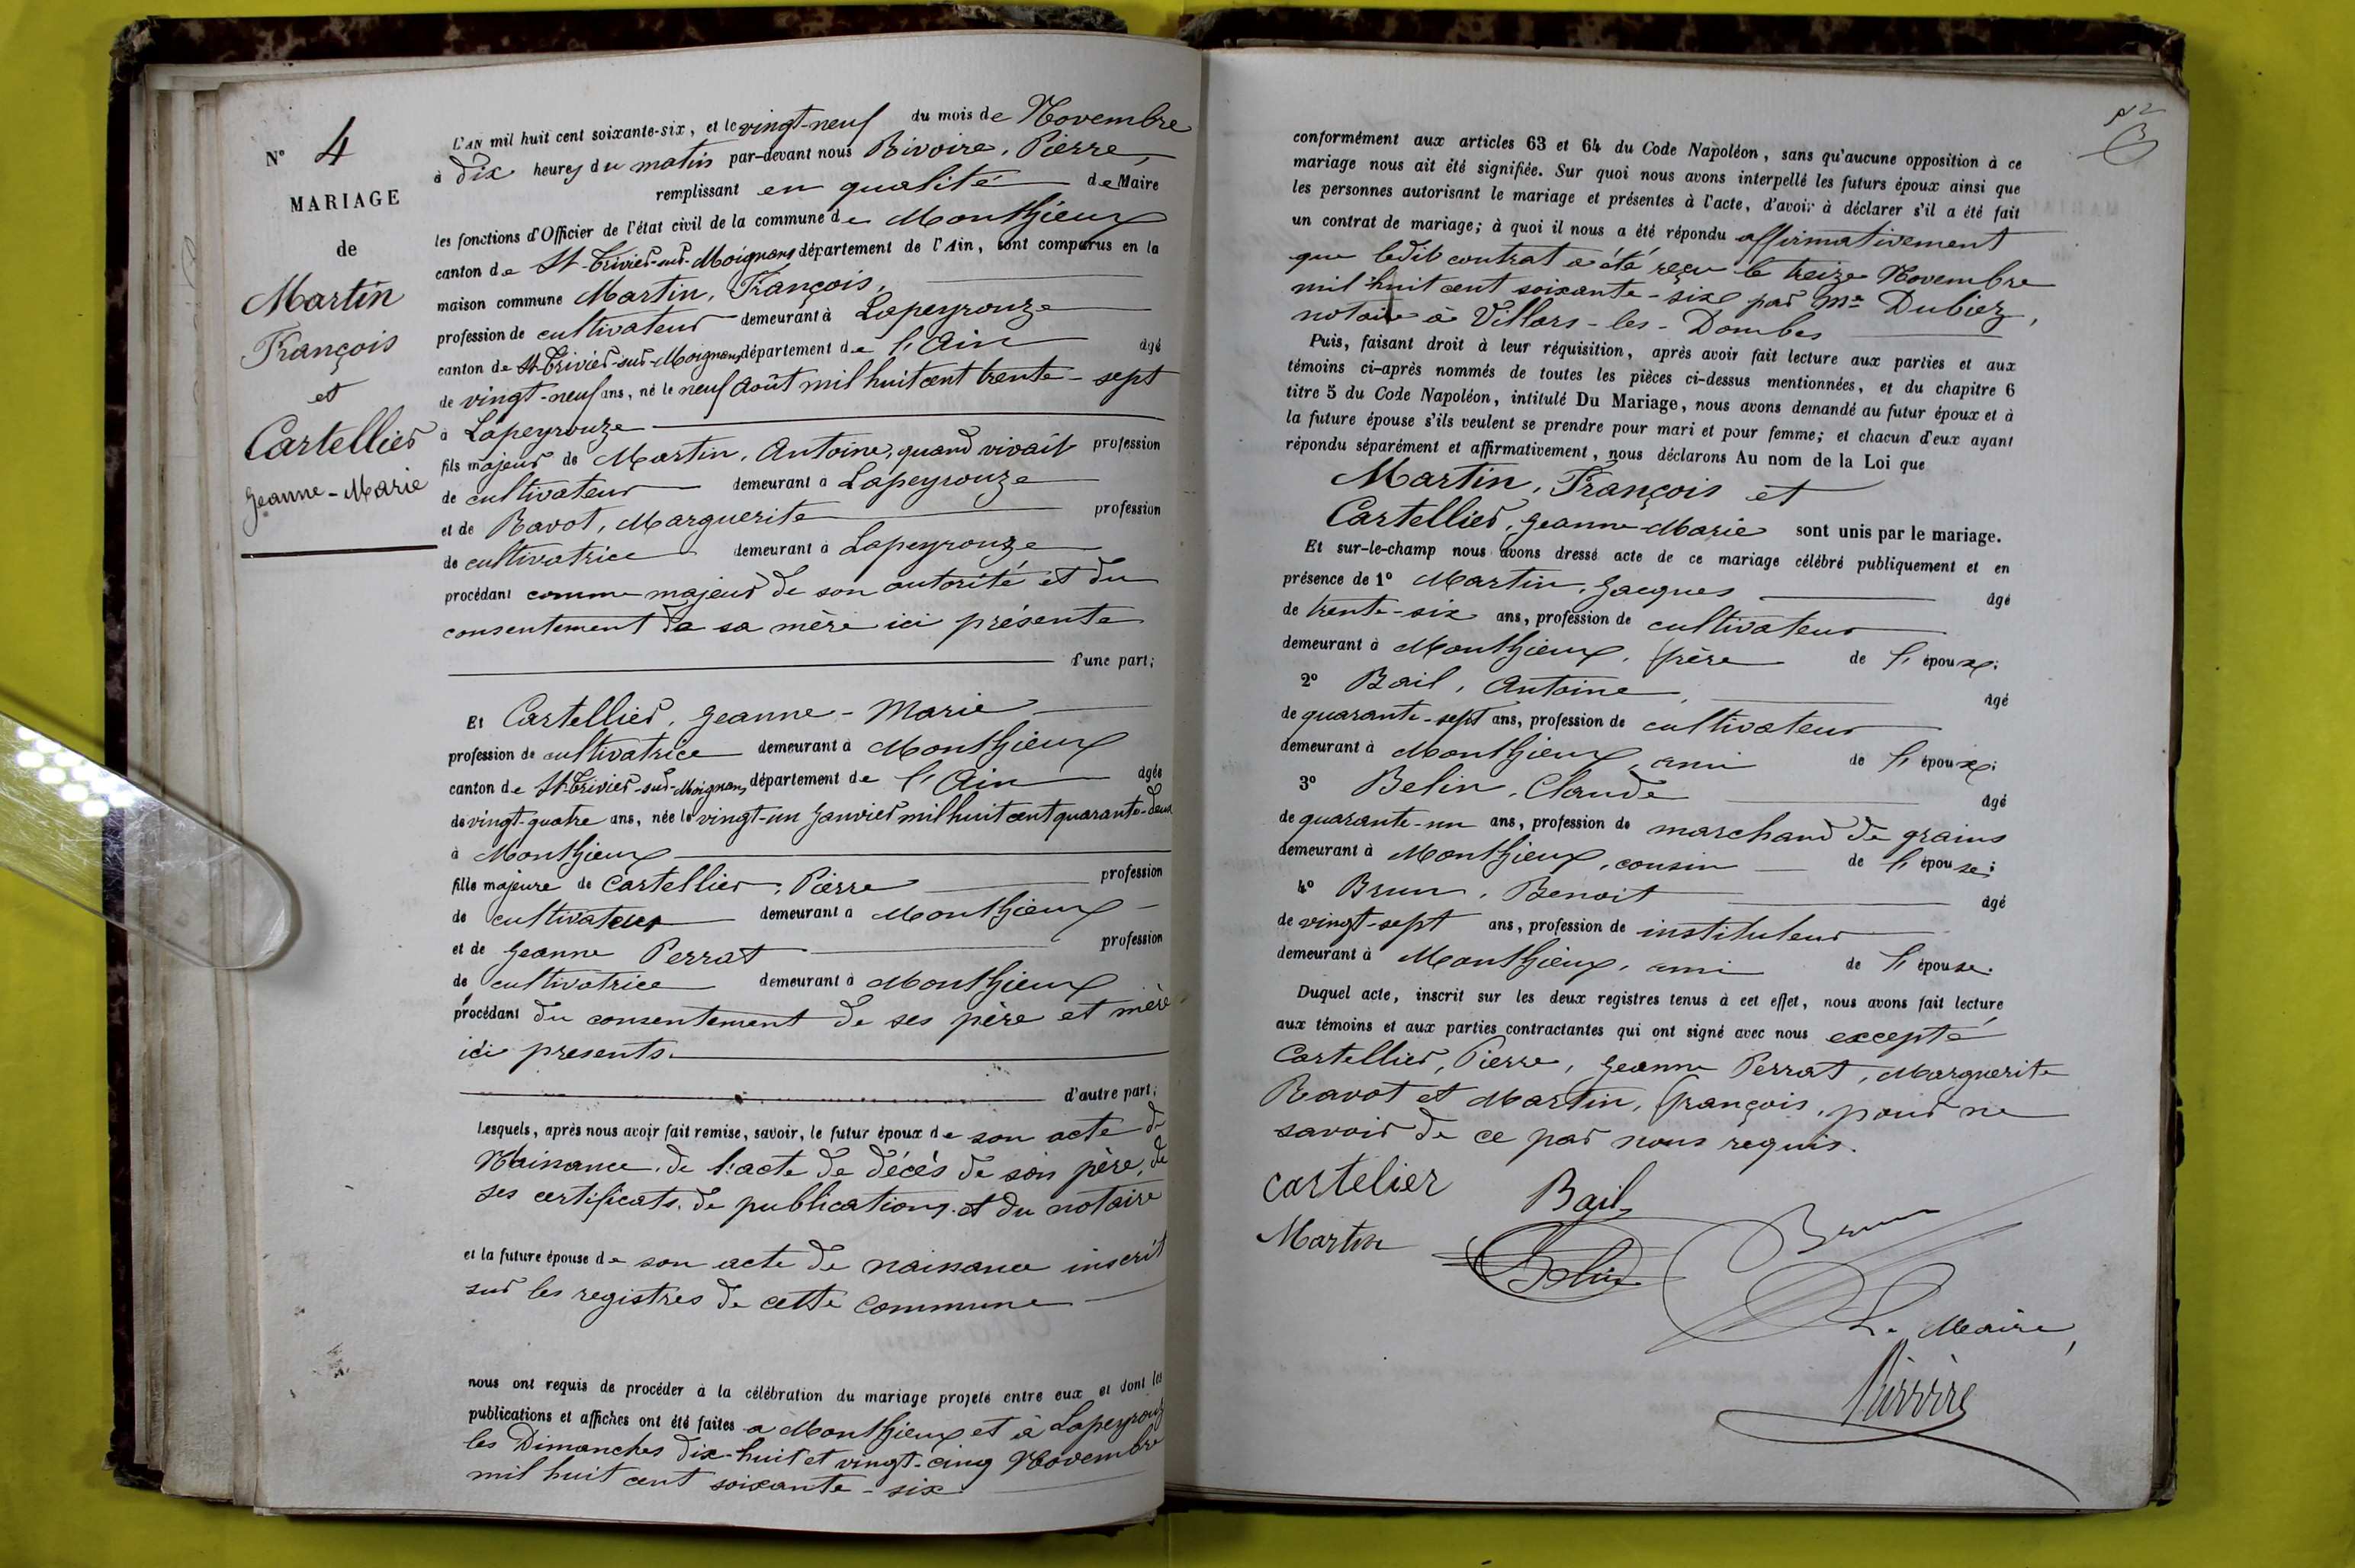 N° 4
MARIAGE
de
Martin
François
et
Cartellier
Jeanne-Marie
L'AN mil huit cent soixante-six, et le vingt-neuf du mois de Novembre
à dix heures du matin par-devant nous Rivoire, Pierre,
remplissant en qualité de Maire
les fonctions d'Officier de l'état civil de la commune de Monthieux
canton de St-Trivier-sur-Moignans département de l'Ain, sont comparus en la
maison commune Martin, François,
profession de cultivateur demeurant à Lapeyrouze
canton de St-Trivier-sur-Moignans département de l'Ain âgé
de vingt-neuf ans, né le neuf Août mil huit cent trente-sept
à Lapeyrouze
fils majeur de Martin, Antoine, quand vivait profession
de cultivateur demeurant à Lapeyrouze
et de Ravot, Marguerite profession
de cultivatrice demeurant à Lapeyrouze
procédant comme majeur de son autorité et du
consentement de sa mère ici présente
d'une part;
Et Cartellier, Jeanne-Marie
profession de cultivatrice demeurant à Monthieux
canton de St-Trivier-sur-Moignans département de l'Ain âgée
de vingt-quatre ans, née le vingt-un Janvier mil huit cent quarante-deux
à Monthieux
fille majeure de Cartellier, Pierre profession
de cultivateur demeurant à Monthieux
et de Jeanne Perrat profession
de cultivatrice demeurant à Monthieux
procédant du consentement de ses père et mère
ici présents.
d'autre part;
Lesquels, après nous avoir fait remise, savoir, le futur époux de son acte de
Naissance, de l'acte de décès de son père, de
ses certificats de publications et du notaire
et la future épouse de son acte de naissance inscrit
sur les registres de cette commune
nous ont requis de procéder à la célébration du mariage projeté entre eux et dont les
publications et affiches ont été faites à Monthieux et à Lapeyrouz
les Dimanches dix-huit et vingt-cinq Novembre
mil huit cent soixante-six
conformément aux articles 63 et 64 du Code Napoléon, sans qu'aucune opposition à ce
mariage nous ait été signifiée. Sur quoi nous avons interpellé les futurs époux ainsi que
les personnes autorisant le mariage et présentes à l'acte, d'avoir à déclarer s'il a été fait
un contrat de mariage; à quoi il nous a été répondu affirmativement
que ledit contrat a été reçu le treize Novembre
mil huit cent soixante-six par Me Dubiez,
notaire à Villars-les-Dombes
Puis, faisant droit à leur réquisition, après avoir fait lecture aux parties et aux
témoins ci-après nommés de toutes les pièces ci-dessus mentionnées, et du chapitre 6
titre 5 du Code Napoléon, intitulé Du Mariage, nous avons demandé au futur époux et à
la future épouse s'ils veulent se prendre pour mari et pour femme; et chacun d'eux ayant
répondu séparément et affirmativement, nous déclarons Au nom de la Loi que
Martin, François et
Cartellier, Jeanne-Marie sont unis par le mariage.
Et sur-le-champ nous avons dressé acte de ce mariage célébré publiquement et en
présence de 1° Martin, Jacques âgé
de trente-six ans, profession de cultivateur
demeurant à Monthieux, frère de l'époux;
2° Bail, Antoine, âgé
de quarante-sept ans, profession de cultivateur
demeurant à Monthieux, ami de l'époux;
3° Belin, Claude âgé
de quarante-un ans, profession de marchand de grains
demeurant à Monthieux, cousin de l'épouse;
4° Brun, Benoit âgé
de vingt-sept ans, profession de instituteur
demeurant à Monthieux, ami de l'épouse.
Duquel acte, inscrit sur les deux registres tenus à cet effet, nous avons fait lecture
aux témoins et aux parties contractantes qui ont signé avec nous excepté
Cartellier, Pierre, Jeanne Perrat, Marguerite
Ravot et Martin, François, pour ne
savoir de ce par nous requis.
Cartelier Bail Brun
Martin Belin
Le Maire,
Rivoire